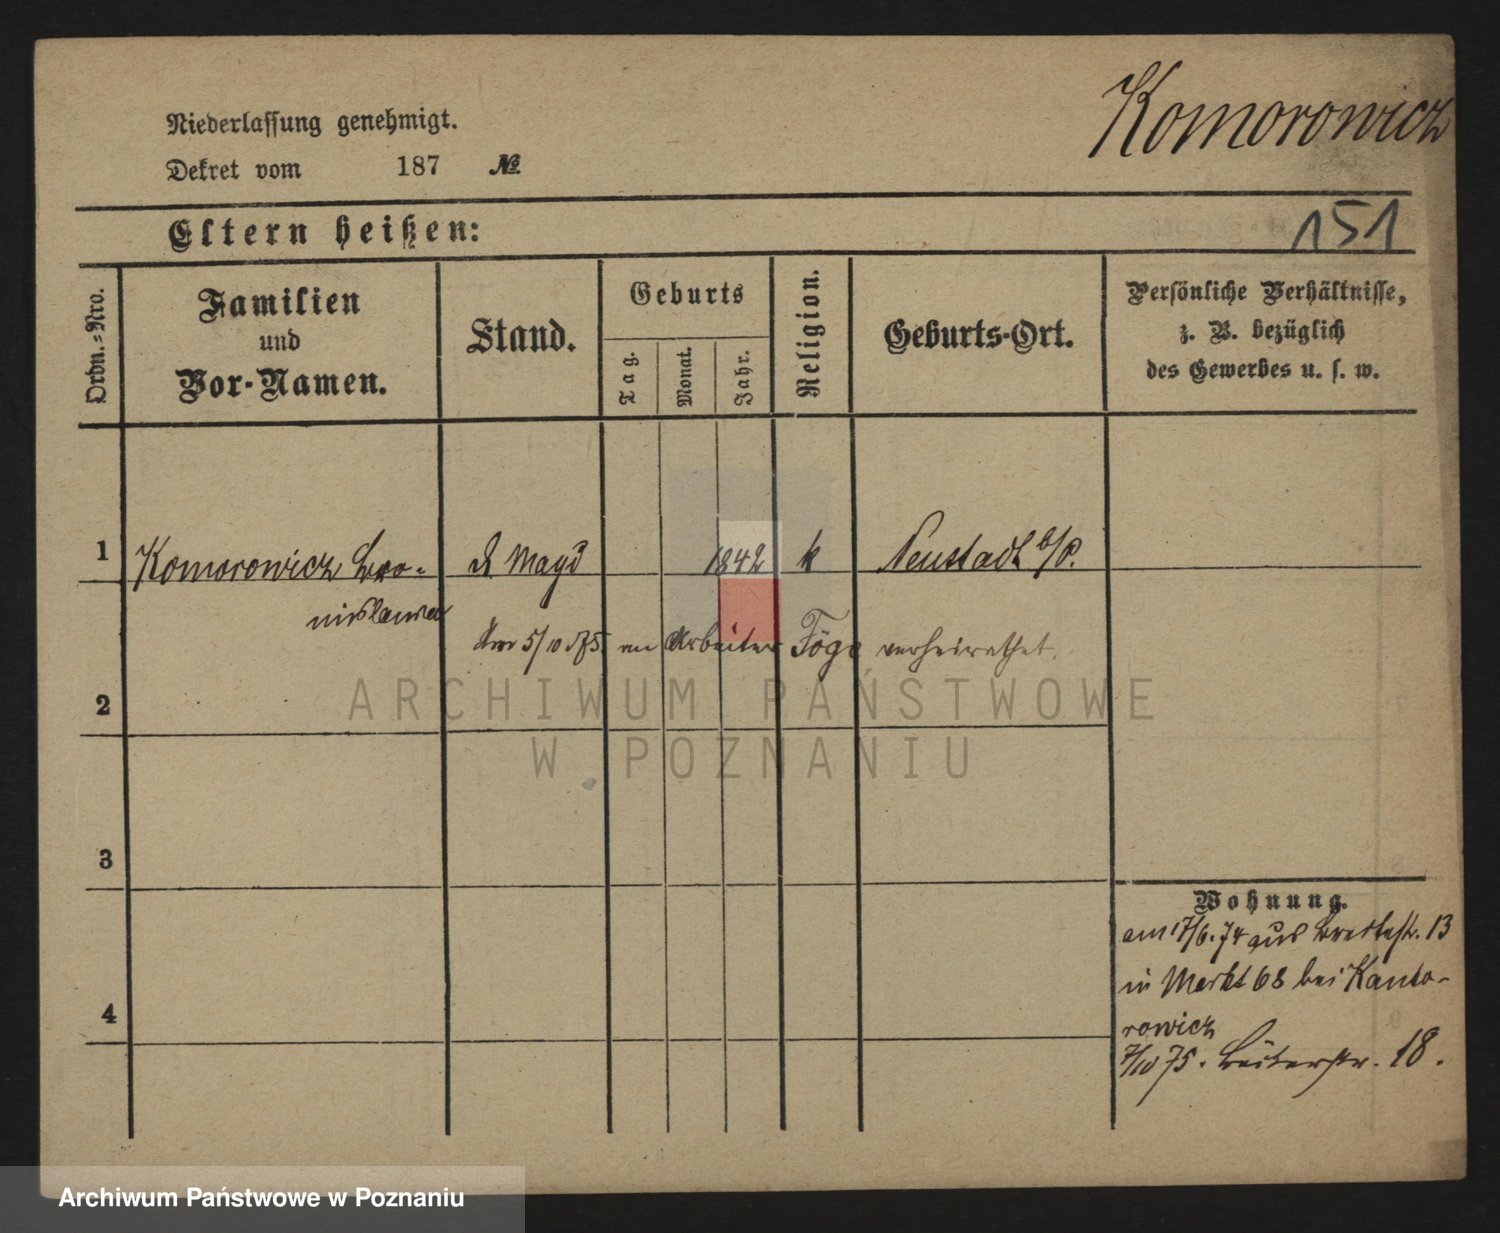 Komorowicz
Niederlassung genehmigt.
Dekret vom 187 №
Eltern heißen:
151
Ordn.=Nro.
Familien
und
Vor-Namen.
Stand.
Geburts
Tag.
Monat.
Jahr.
Religion.
Geburts-Ort.
Persönliche Verhältnisse,
z. B. bezüglich
des Gewerbes u. s. w.
1 Komorowicz Bro- d Magd 1842 k Neustadt b/P.
nislawa
5/10 75 an Arbeiter verheirathet.
2
3
4
Wohnung.
am 17/6. 74 aus Breitestr. 13
in Markt 68 bei Kanto-
rowicz
7/10 75. 18.
ARCHIWUM PAŃSTWOWE
W POZNANIU
Archiwum Państwowe w Poznaniu